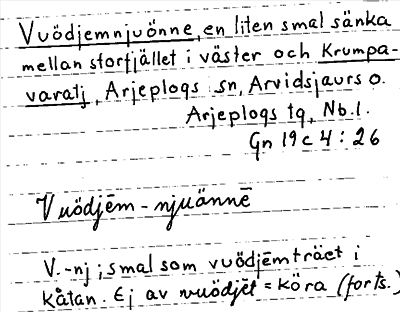 Vuödjemnjuönne, en liten smal sänka
mellan storfjället i väster och Krumpa-
varatj, Arjeplogs sn, Arvidsjaurs o.
Arjeplogs tg, Nb.l.
Gn 19c 4:26
Vuödjēm-njuännē
V.-nj; smal som vuödjēmträet i
kåtan. Ej av vuödjēt = köra (forts.)